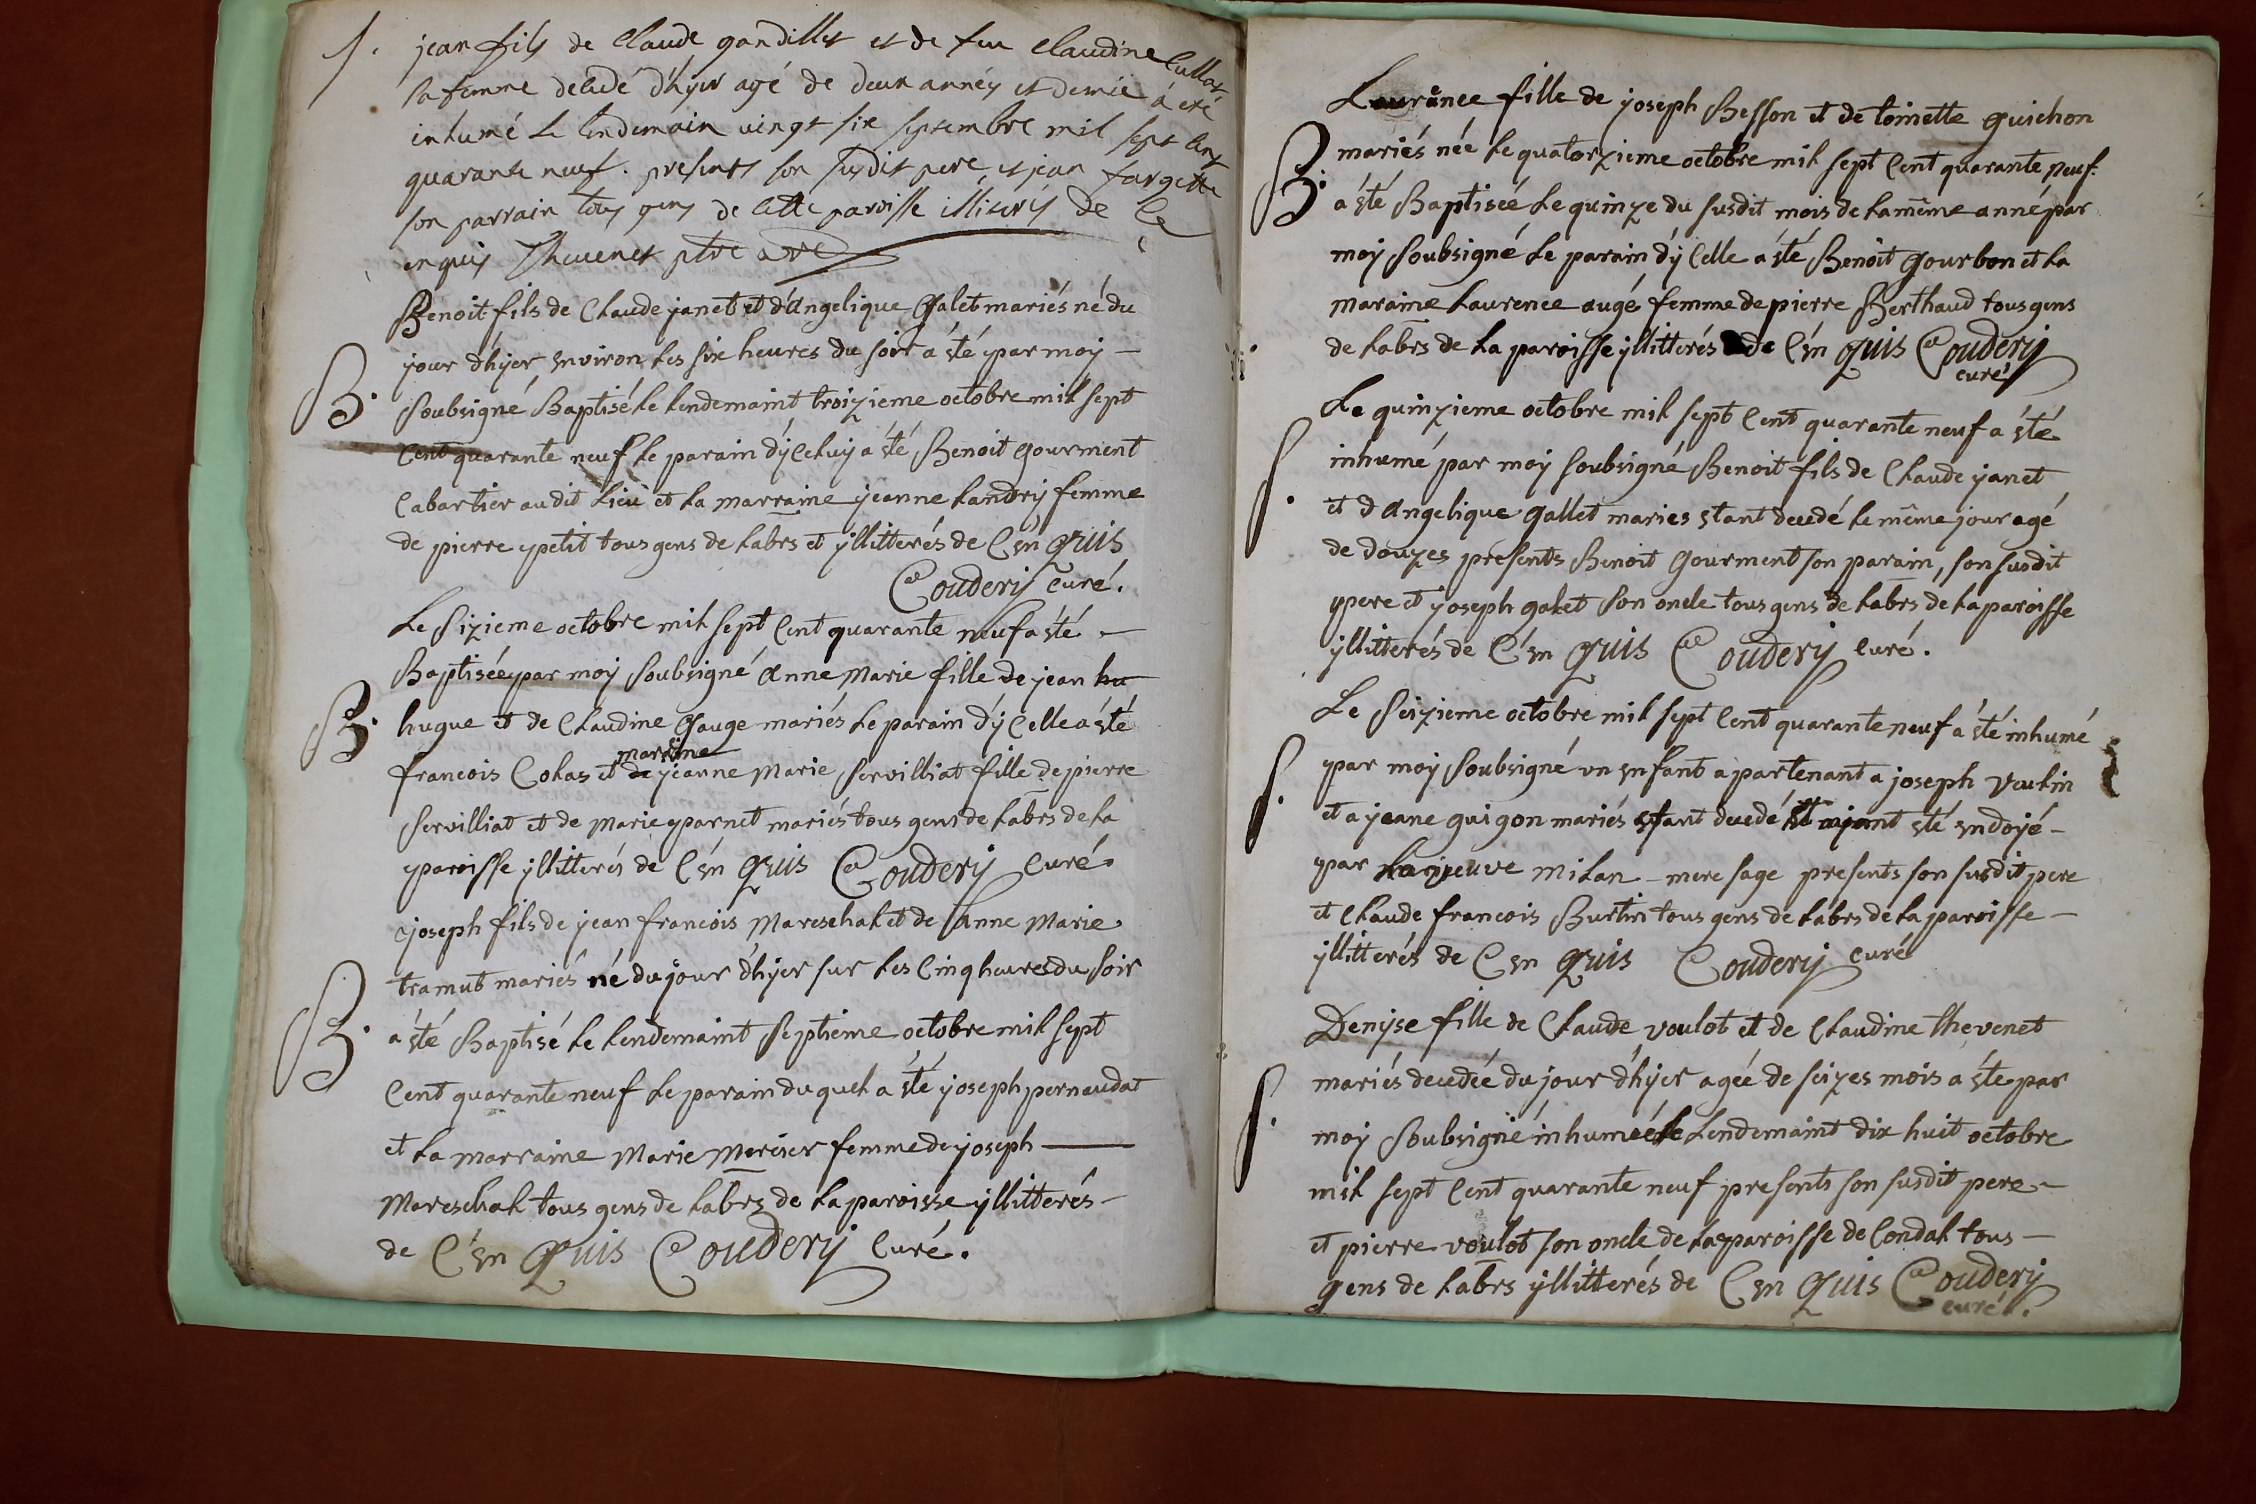 S. jean fils de Claude gandillet et de feu Claudine Cullat
sa femme decedé d'hyer agé de deux années et demie à eté
inhumé le lendemain vingt six septembre mil sept cent
quarante neuf. presents son susdit pere, et jean fargette
son parrain tous gens de cette paroisse illiterés de ce
enquis Thevenet ptre
Benoit fils de Claude janet et d'angelique Galet mariés né du
jour d'hyer environ les six heures du soir a été par moy –
B. soubsigné Baptisé le lendemaint troizieme octobre mil sept
Cent quarante neuf le parain d'yceluy a été Benoit gourment
Cabartier audit Lieu et la marraine jeanne Landry femme
de pierre petit tous gens de labrs et yllitterés de C'en quis
Coudery curé.
Le Sizieme octobre mil sept Cent quarante neuf a été –
Baptisée par moy soubsigné anne marie fille de jean hu
B. hugue et de Claudine Gauge mariés le parain d'ycelle a été
maraine
francois Colas et de jeanne marie servilliat fille de pierre
servilliat et de marie parnet mariés tous gens de labrs de la
paroisse yllitterés de C'en quis Coudery curé.
joseph fils de jean francois mareschal et de anne marie
tramut mariés né du jour d'hyer sur les Cinq heures du soir
B. a été Baptisé le lendemaint septieme octobre mil sept
Cent quarante neuf le parain duquel a été joseph pernaudat
et la marraine marie mercier femme de joseph –
mareschal tous gens de labrs de la paroisse yllitterés –
de C'en quis Coudery curé.
Laurance fille de joseph Besson et de toinette guichon
B. mariés née le quatorzieme octobre mil sept Cent quarante neuf.
a été Baptisée le quinze du susdit mois de la mème anné par
moy soubsigné le parain d'ycelle a été Benoit gourbon et la
maraine Laurence augé femme de pierre Berthaud tous gens
de labrs de la paroisse yllitterés de C'en quis Coudery
curé
Le quinzieme octobre mil sept Cent quarante neuf a été
S. inhumé par moy soubsigné Benoit fils de Claude janet
et d'angelique gallet maries etant decedé le mème jour agé
de douzes presents Benoit gourment son parain, son susdit
pere et joseph galet son oncle tous gens de labrs de la paroisse
yllitterés de C'en quis Coudery curé.
Le Seizieme octobre mil sept Cent quarante neuf a été inhumé
S. par moy soubsigné un enfant apartenant a joseph voulin
et a jeane guigon mariés etant decedé et ajant été endoyé –
par La veuve milan – mere sage presents son susdit pere
et Claude francois Burtin tous gens de labrs de la paroisse –
yllitterés de C'en quis Coudery curé
Denyse fille de Claude voulot et de Claudine thevenet
S. mariés decedée du jour d'hyer agée de seizes mois a éte par
moy soubsigné inhumée le Lendemaint dix huit octobre
mil sept Cent quarante neuf presents son susdit pere –
et pierre voulot son oncle de la paroisse de Condal tous –
gens de labrs yllitterés de C'en quis Coudery
curé.